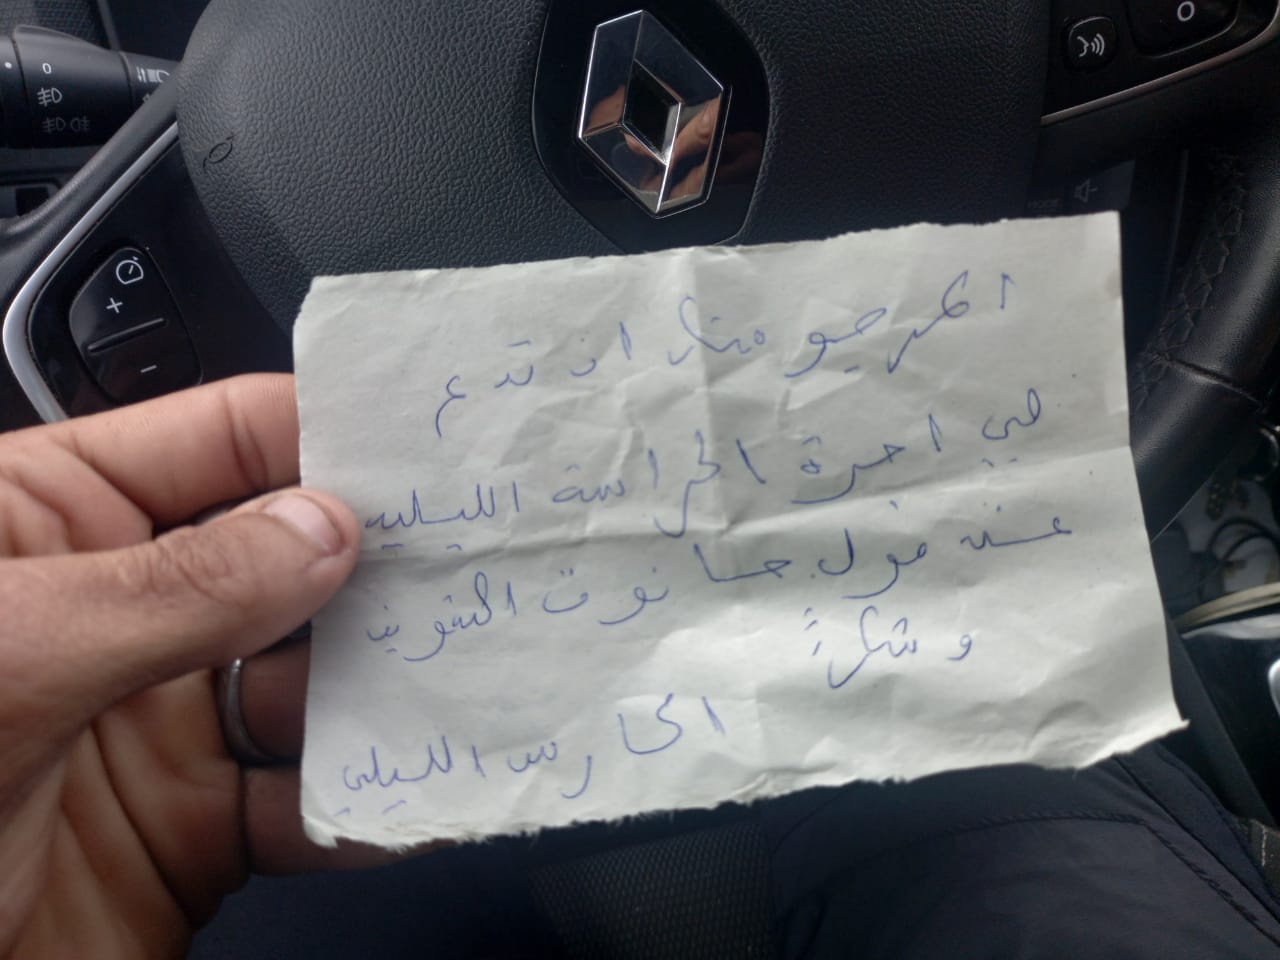 المرجو منك ان تدع
لي اجرة الحراسة الليلية
عند مول حانوت
وشكرا
الحارس الليلي